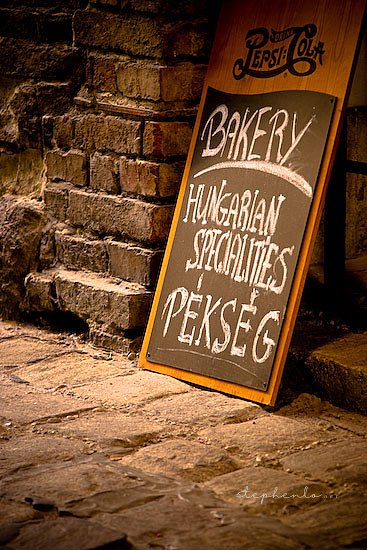 DRINK
PEPSI:COLA
BAKERY
HUNGARIAN
SPECIALITIES
PÉKSÉG
stephenlo.net